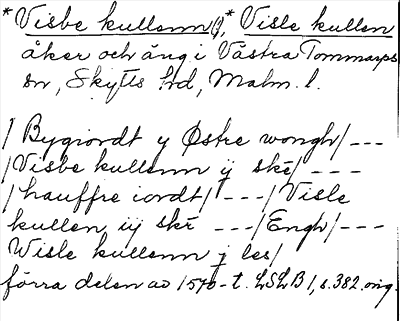 *Visbe kullenn(?), *Visle kullen
åker och äng i Västra Tommarps
sn, Skytts hd, Malm. l.
/ Bygiordt y Østre wongh / ---
/ Visbe kullenn ij skē / ---
/ hauffre iordt / --- / Visle
kullen iij skē --- / Engh / ---
Wisle kullenn j les /
förra delen av 1570-t. LSLB 1, s. 382. orig.